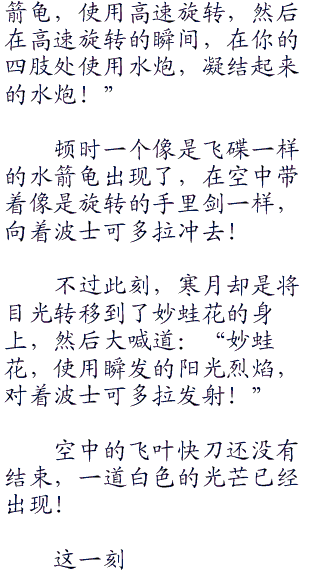 箭龟，使用高速旋转，然后
在高速旋转的瞬间，在你的
四肢处使用水炮，凝结起来
的水炮！”
顿时一个像是飞碟一样
的水箭龟出现了，在空中带
着像是旋转的手里剑一样，
向着波士可多拉冲去！
不过此刻，寒月却是将
目光转移到了妙蛙花的身
上，然后大喊道：“妙蛙
花，使用瞬发的阳光烈焰，
对着波士可多拉发射！”
空中的飞叶快刀还没有
结束，一道白色的光芒已经
出现！
这一刻